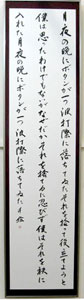 月夜の晩にボタンが一つ波打際に落ちてゐたそれを拾つて役立てようと
僕は思つたわけでもないがなぜだかそれを捨てるに忍びず僕はそれを袂に
入れた月夜の晩にボタンが一つ波打際に落ちてゐた